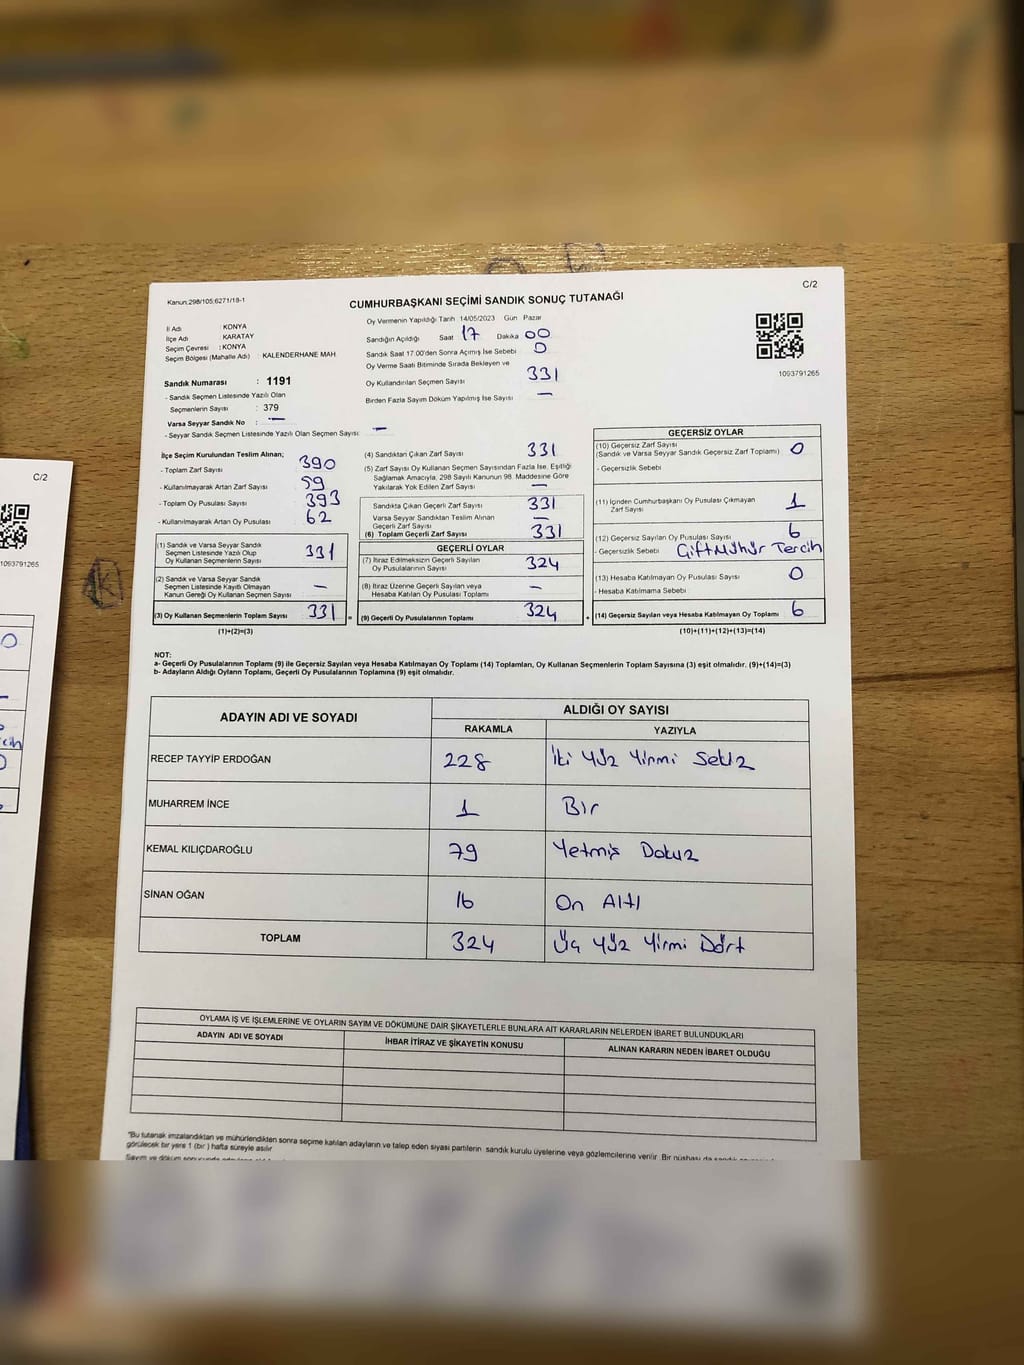 C/2
Kanun,298/105;6271/18-1
CUMHURBAŞKANI SEÇİMİ SANDIK SONUÇ TUTANAĞI
İl Adı : KONYA
İlçe Adı : KARATAY
Seçim Çevresi : KONYA
Seçim Bölgesi (Mahalle Adı) : KALENDERHANE MAH
Sandık Numarası : 1191
- Sandık Seçmen Listesinde Yazılı Olan
Seçmenlerin Sayısı : 379
Varsa Seyyar Sandık No : —
- Seyyar Sandık Seçmen Listesinde Yazılı Olan Seçmen Sayısı: —
Oy Vermenin Yapıldığı Tarih :14/05/2023 Gün : Pazar
Sandığın Açıldığı Saat 17 Dakika 00
Sandık Saat 17:00'den Sonra Açımış İse Sebebi 0
Oy Verme Saati Bitiminde Sırada Bekleyen ve
Oy Kullandırılan Seçmen Sayısı 331
Birden Fazla Sayım Döküm Yapılmış İse Sayısı —
1093791265
İlçe Seçim Kurulundan Teslim Alınan;
- Toplam Zarf Sayısı 390
- Kullanılmayarak Artan Zarf Sayısı 59
- Toplam Oy Pusulası Sayısı 393
- Kullanılmayarak Artan Oy Pusulası 62
(1) Sandık ve Varsa Seyyar Sandık
Seçmen Listesinde Yazılı Olup
Oy Kullanan Seçmenlerin Sayısı 331
(2) Sandık ve Varsa Seyyar Sandık
Seçmen Listesinde Kayıtlı Olmayan
Kanun Gereği Oy Kullanan Seçmen Sayısı —
(3) Oy Kullanan Seçmenlerin Toplam Sayısı 331 =
(1)+(2)=(3)
(4) Sandıktan Çıkan Zarf Sayısı 331
(5) Zarf Sayısı Oy Kullanan Seçmen Sayısından Fazla İse, Eşitliği
Sağlamak Amacıyla, 298 Sayılı Kanunun 98. Maddesine Göre
Yakılarak Yok Edilen Zarf Sayısı —
Sandıkta Çıkan Geçerli Zarf Sayısı 331
Varsa Seyyar Sandıktan Teslim Alınan
Geçerli Zarf Sayısı —
(6) Toplam Geçerli Zarf Sayısı 331
GEÇERLİ OYLAR
(7) İtiraz Edilmeksizin Geçerli Sayılan
Oy Pusulalarının Sayısı 324
(8) İtiraz Üzerine Geçerli Sayılan veya
Hesaba Katılan Oy Pusulası Toplamı —
(9) Geçerli Oy Pusulalarının Toplamı 324 +
GEÇERSİZ OYLAR
(10) Geçersiz Zarf Sayısı 0
(Sandık ve Varsa Seyyar Sandık Geçersiz Zarf Toplamı)
- Geçersizlik Sebebi
(11) İçinden Cumhurbaşkanı Oy Pusulası Çıkmayan
Zarf Sayısı 1
(12) Geçersiz Sayılan Oy Pusulası Sayısı 6
- Geçersizlik Sebebi Çift Mühür Tercih
(13) Hesaba Katılmayan Oy Pusulası Sayısı 0
- Hesaba Katılmama Sebebi
(14) Geçersiz Sayılan veya Hesaba Katılmayan Oy Toplamı 6
(10)+(11)+(12)+(13)=(14)
NOT:
a- Geçerli Oy Pusulalarının Toplamı (9) ile Geçersiz Sayılan veya Hesaba Katılmayan Oy Toplamı (14) Toplamları, Oy Kullanan Seçmenlerin Toplam Sayısına (3) eşit olmalıdır. (9)+(14)=(3)
b- Adayların Aldığı Oyların Toplamı, Geçerli Oy Pusulalarının Toplamına (9) eşit olmalıdır.
ADAYIN ADI VE SOYADI
ALDIĞI OY SAYISI
RAKAMLA YAZIYLA
RECEP TAYYİP ERDOĞAN 228 İki Yüz Yirmi Sekiz
MUHARREM İNCE 1 Bir
KEMAL KILIÇDAROĞLU 79 Yetmiş Dokuz
SİNAN OĞAN 16 On Altı
TOPLAM 324 Üç Yüz Yirmi Dört
OYLAMA İŞ VE İŞLEMLERİNE VE OYLARIN SAYIM VE DÖKÜMÜNE DAİR ŞİKAYETLERLE BUNLARA AİT KARARLARIN NELERDEN İBARET BULUNDUKLARI
ADAYIN ADI VE SOYADI İHBAR İTİRAZ VE ŞİKAYETİN KONUSU ALINAN KARARIN NEDEN İBARET OLDUĞU
*Bu tutanak imzalandıktan ve mühürlendikten sonra seçime katılan adayların ve talep eden siyasi partilerin sandık kurulu üyelerine veya gözlemcilerine verilir. Bir nüshası da sandık
görülecek bir yere 1 (bir ) hafta süreyle asılır
C/2
1093791265